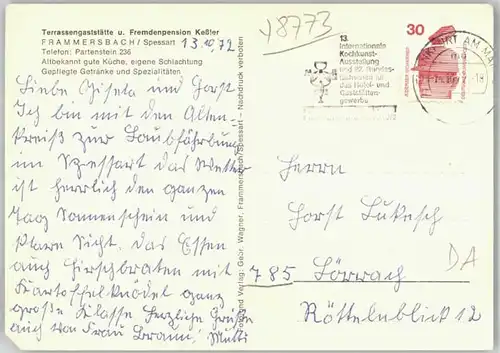 Terrassengaststätte u. Fremdenpension Keßler
FRAMMERSBACH / Spessart
Telefon: Partenstein 236
Altbekannt gute Küche, eigene Schlachtung
Gepflegte Getränke und Spezialitäten
13.10.72
Liebe Gisela und Horst
Ich bin mit den Alten-
Kreiß zur Laubfährbung
im Spessart das Wetter
ist herrlich den ganzen
Tag Sonnenschein und
klare Sicht. Das Essen
auch Hirschbraten mit
Kartoffelknödel ganz
große Klasse herzliche Grüße
auch von Frau Braun, Mutti
Foto und Verlag: Gebr. Wagner, Frammersbach/Spessart – Nachdruck verboten
48773
13.
Internationale
Kochkunst-
Ausstellung
das Hotel- und
Gaststätten-
gewerbe
30
FURT AM MA
18
Herrn
Horst Luksch
785 Lörrach
Röttelnblick 12
DA